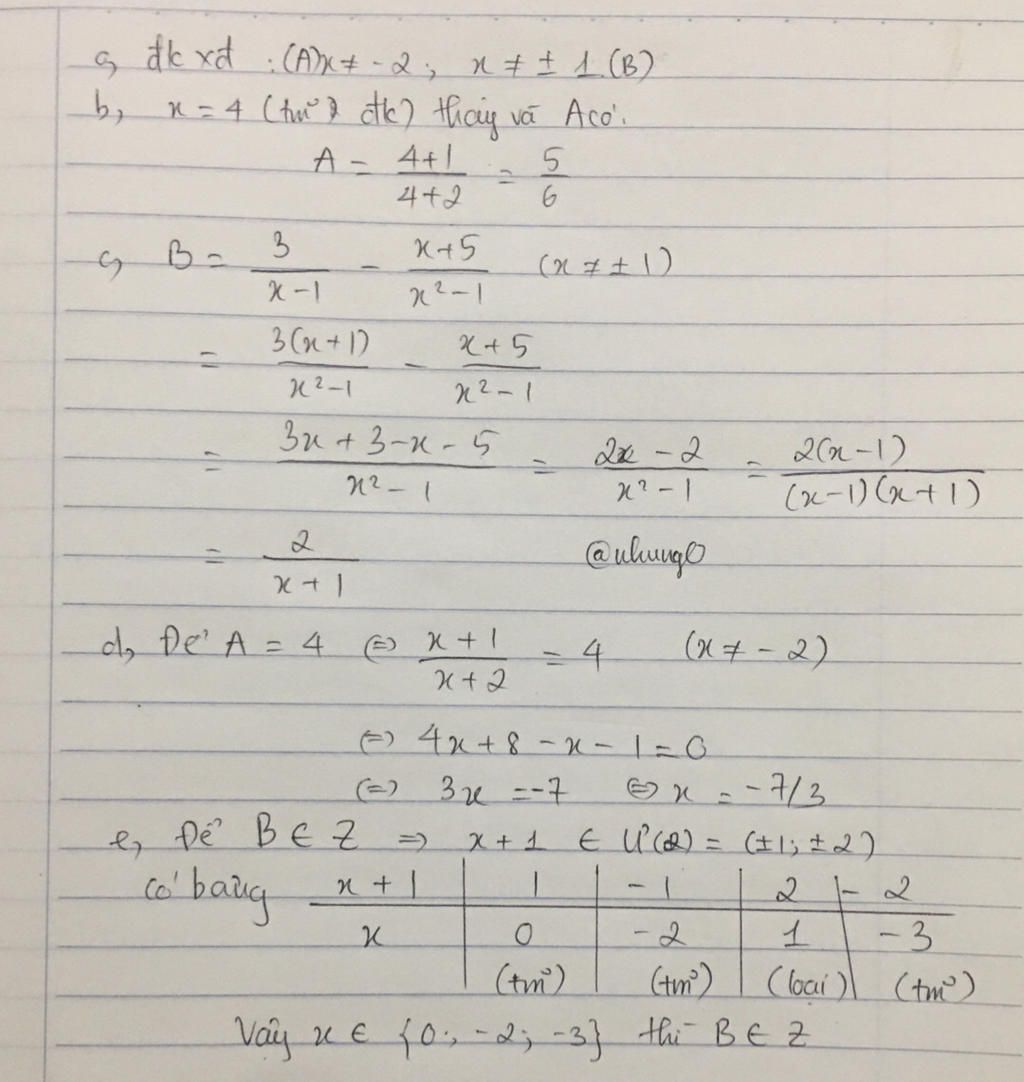 a, đk xđ : (A) x ≠ -2 ; x ≠ ± 1 (B)
b, x = 4 (tm² đk) thay và A có:
A = (4+1)/(4+2) = 5/6
c, B = 3/(x-1) - (x+5)/(x²-1) (x ≠ ± 1)
= 3(x+1)/(x²-1) - (x+5)/(x²-1)
= (3x+3-x-5)/(x²-1) = (2x-2)/(x²-1) = 2(x-1)/((x-1)(x+1))
= 2/(x+1) @nhung
d, Để A = 4 ⇔ (x+1)/(x+2) = 4 (x ≠ -2)
⇔ 4x + 8 - x - 1 = 0
⇔ 3x = -7 ⇔ x = -7/3
e, Để B ∈ Z ⇒ x + 1 ∈ Ư(2) = (±1; ±2)
có bảng x + 1 | 1 | -1 | 2 | -2
x | 0 | -2 | 1 | -3
(tm²) (tm²) (loại) (tm²)
Vậy x ∈ {0; -2; -3} thì B ∈ Z